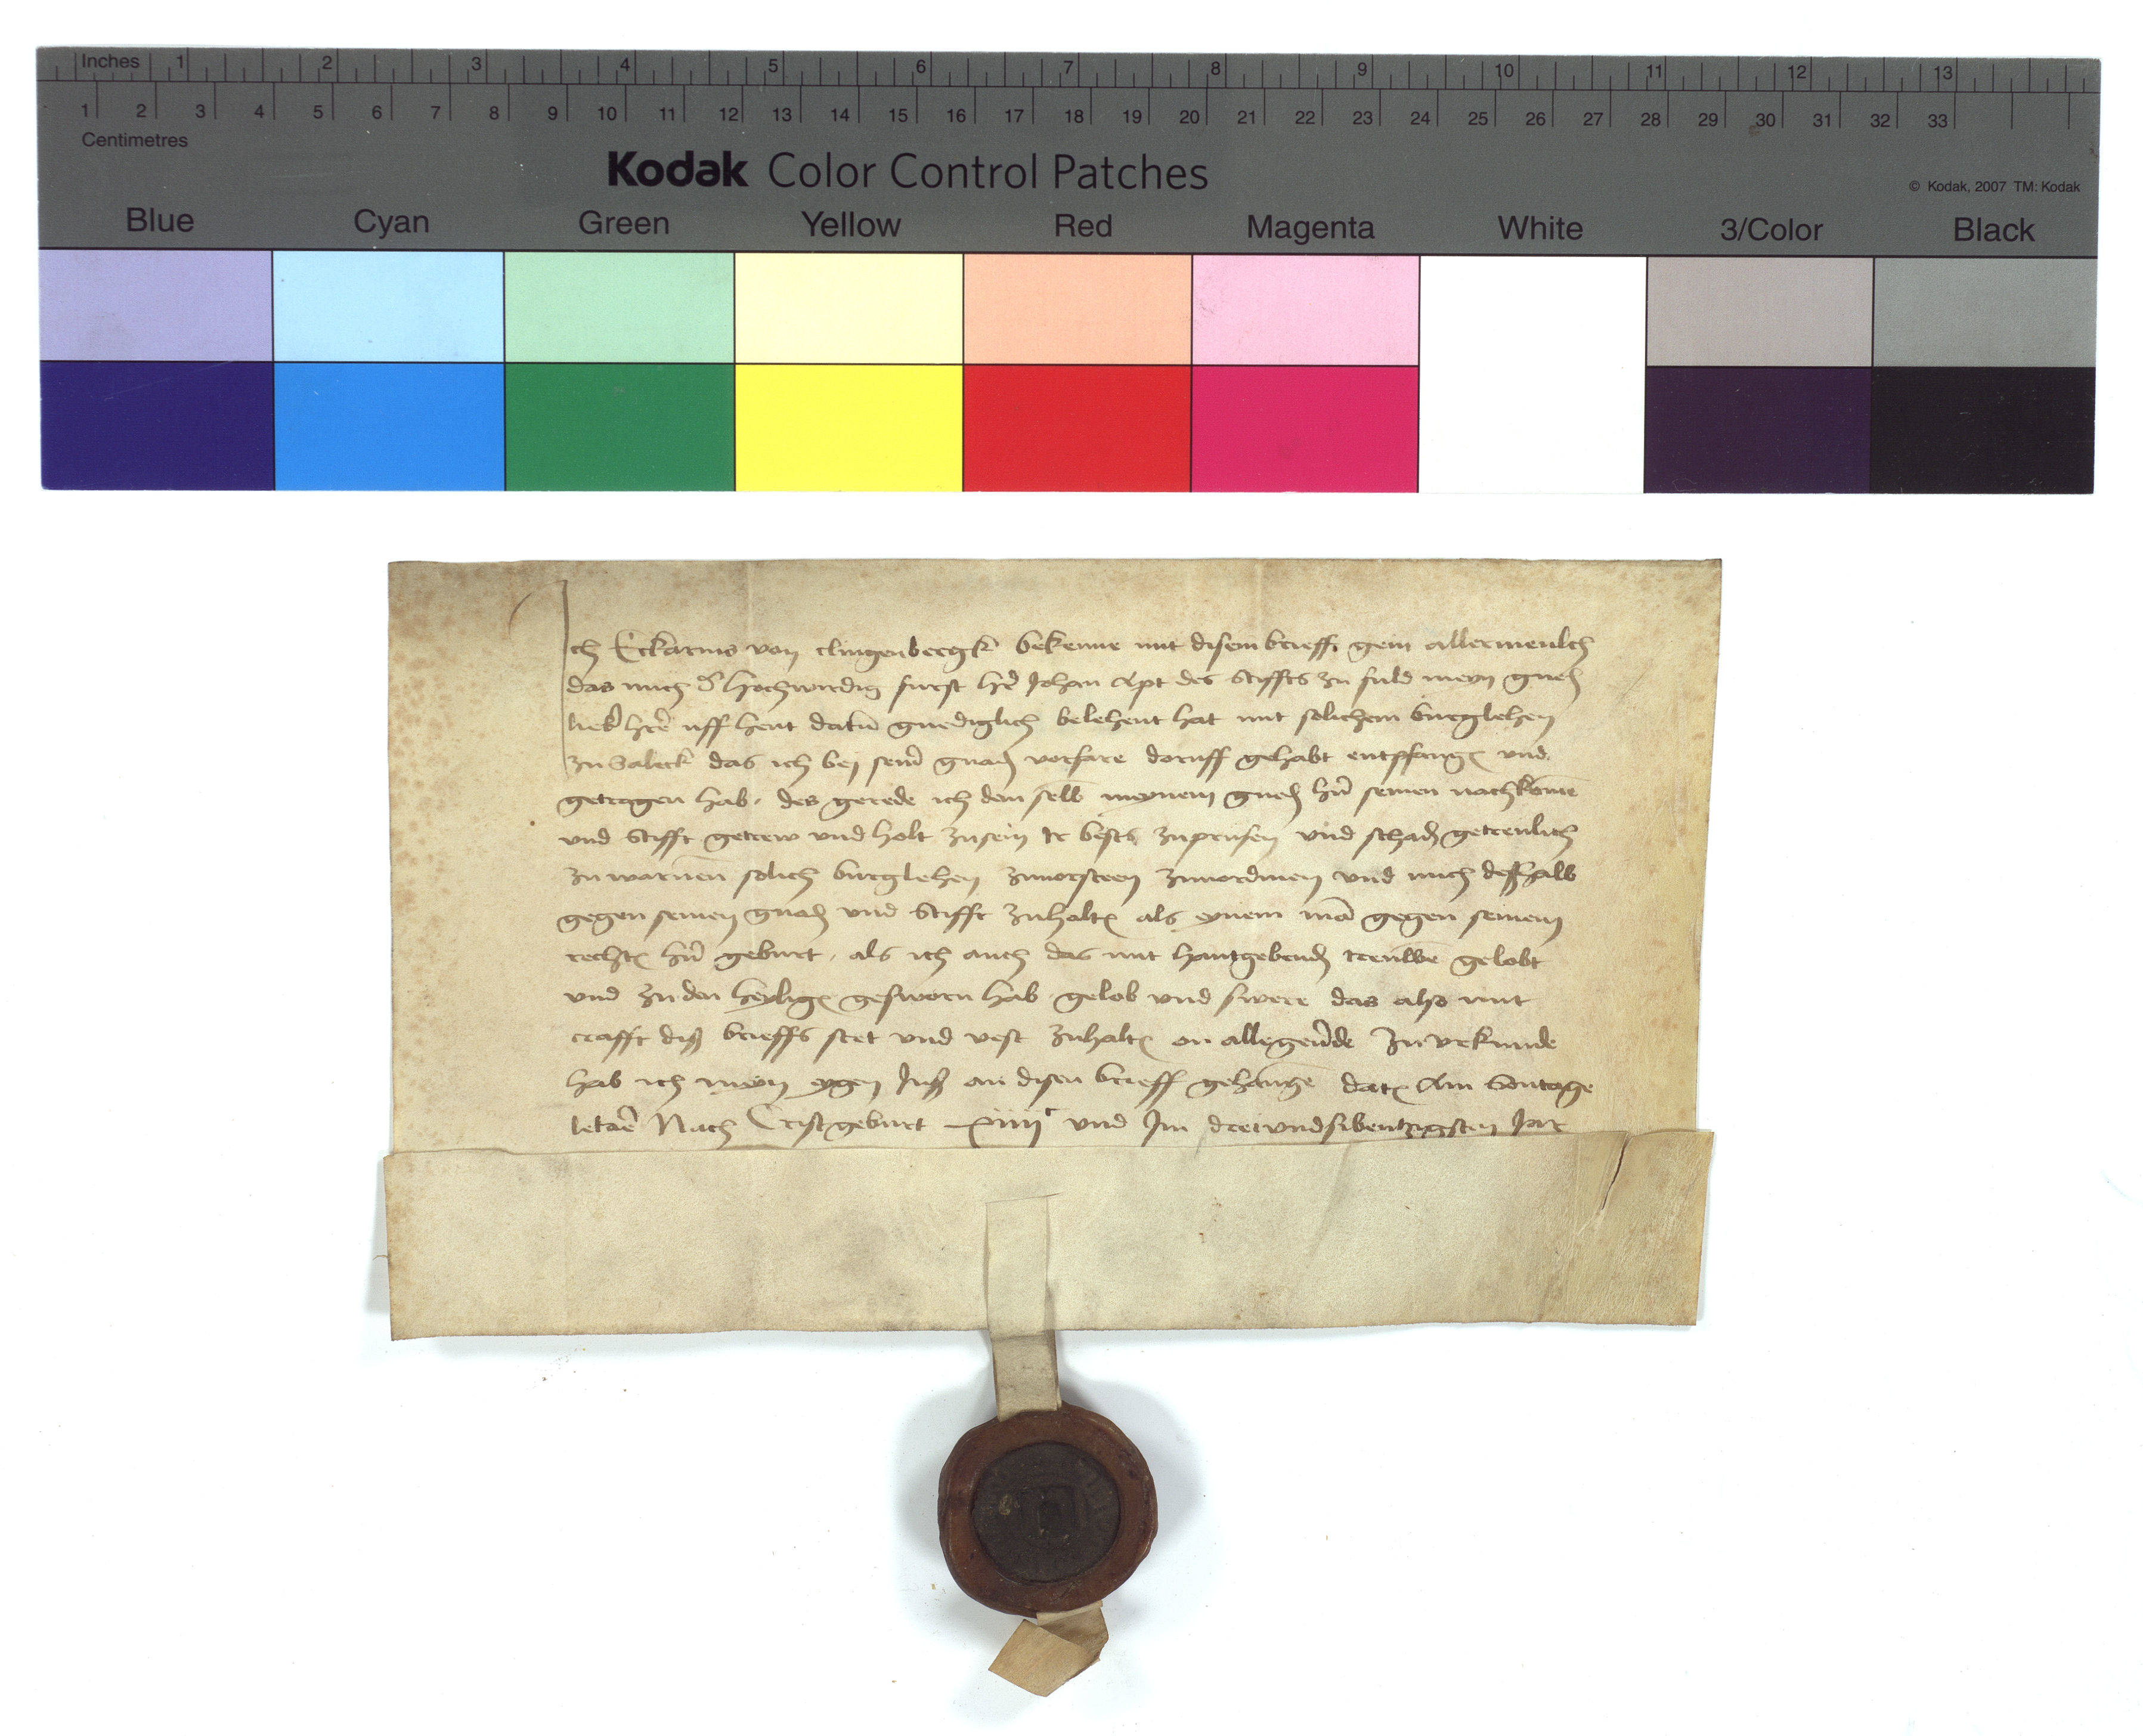 Inches 1 2 3 4 5 6 7 8 9 10 11 12 13
1 2 3 4 5 6 7 8 9 10 11 12 13 14 15 16 17 18 19 20 21 22 23 24 25 26 27 28 29 30 31 32 33
Centimetres
Kodak Color Control Patches
© Kodak, 2007 TM: Kodak
Blue Cyan Green Yellow Red Magenta White 3/Color Black
Ich Eckarius von clingenbergk bekenne mit disem brieff gein allermenlch
das mich d' Hochwirdig furst her Johan Apt des Stiffts zu fuld meyn gned
lieb' hre uff hent datu gnediglich belehent hat mit solichem burglehen
zu Saleck das ich bej seim gnad vorfare doruff gehabt entpfang und
getragen hab. des gerede ich dem selb meynem gned hn seinen nachkome
und Stifft getrew und holt zusein Ir bests zuprufen und schad getreulich
zuwarnen solich burglehen zuuorsteen zuuordinen und mich deßhalb
gegen seinen gnad und Stifft zuhalt als eynem ma gegen seinem
recht hn geburt, als ich auch das mit hantgebend treuwe gelobt
und zu den heylig gesworn hab gelob und swere das also mit
crafft diß brieffs stet und vest zuhalt on allegeu'de Zu urkunde
hab ich meyn eygen Inß an disen brieff gehange dat Am Sontage
letare Nach Crist geburt xiiii c und Im dreiundsibentzigsten Jar